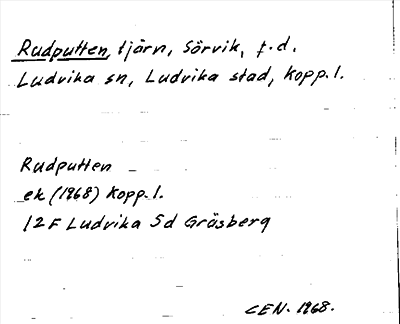 Rudputten, tjärn, Sörvik, f.d.
Ludvika sn, Ludvika stad, Kopp. l.
Rudputten
ek (1968) Kopp. l.
12F Ludvika Sd Gräsberg
CEN. 1968.